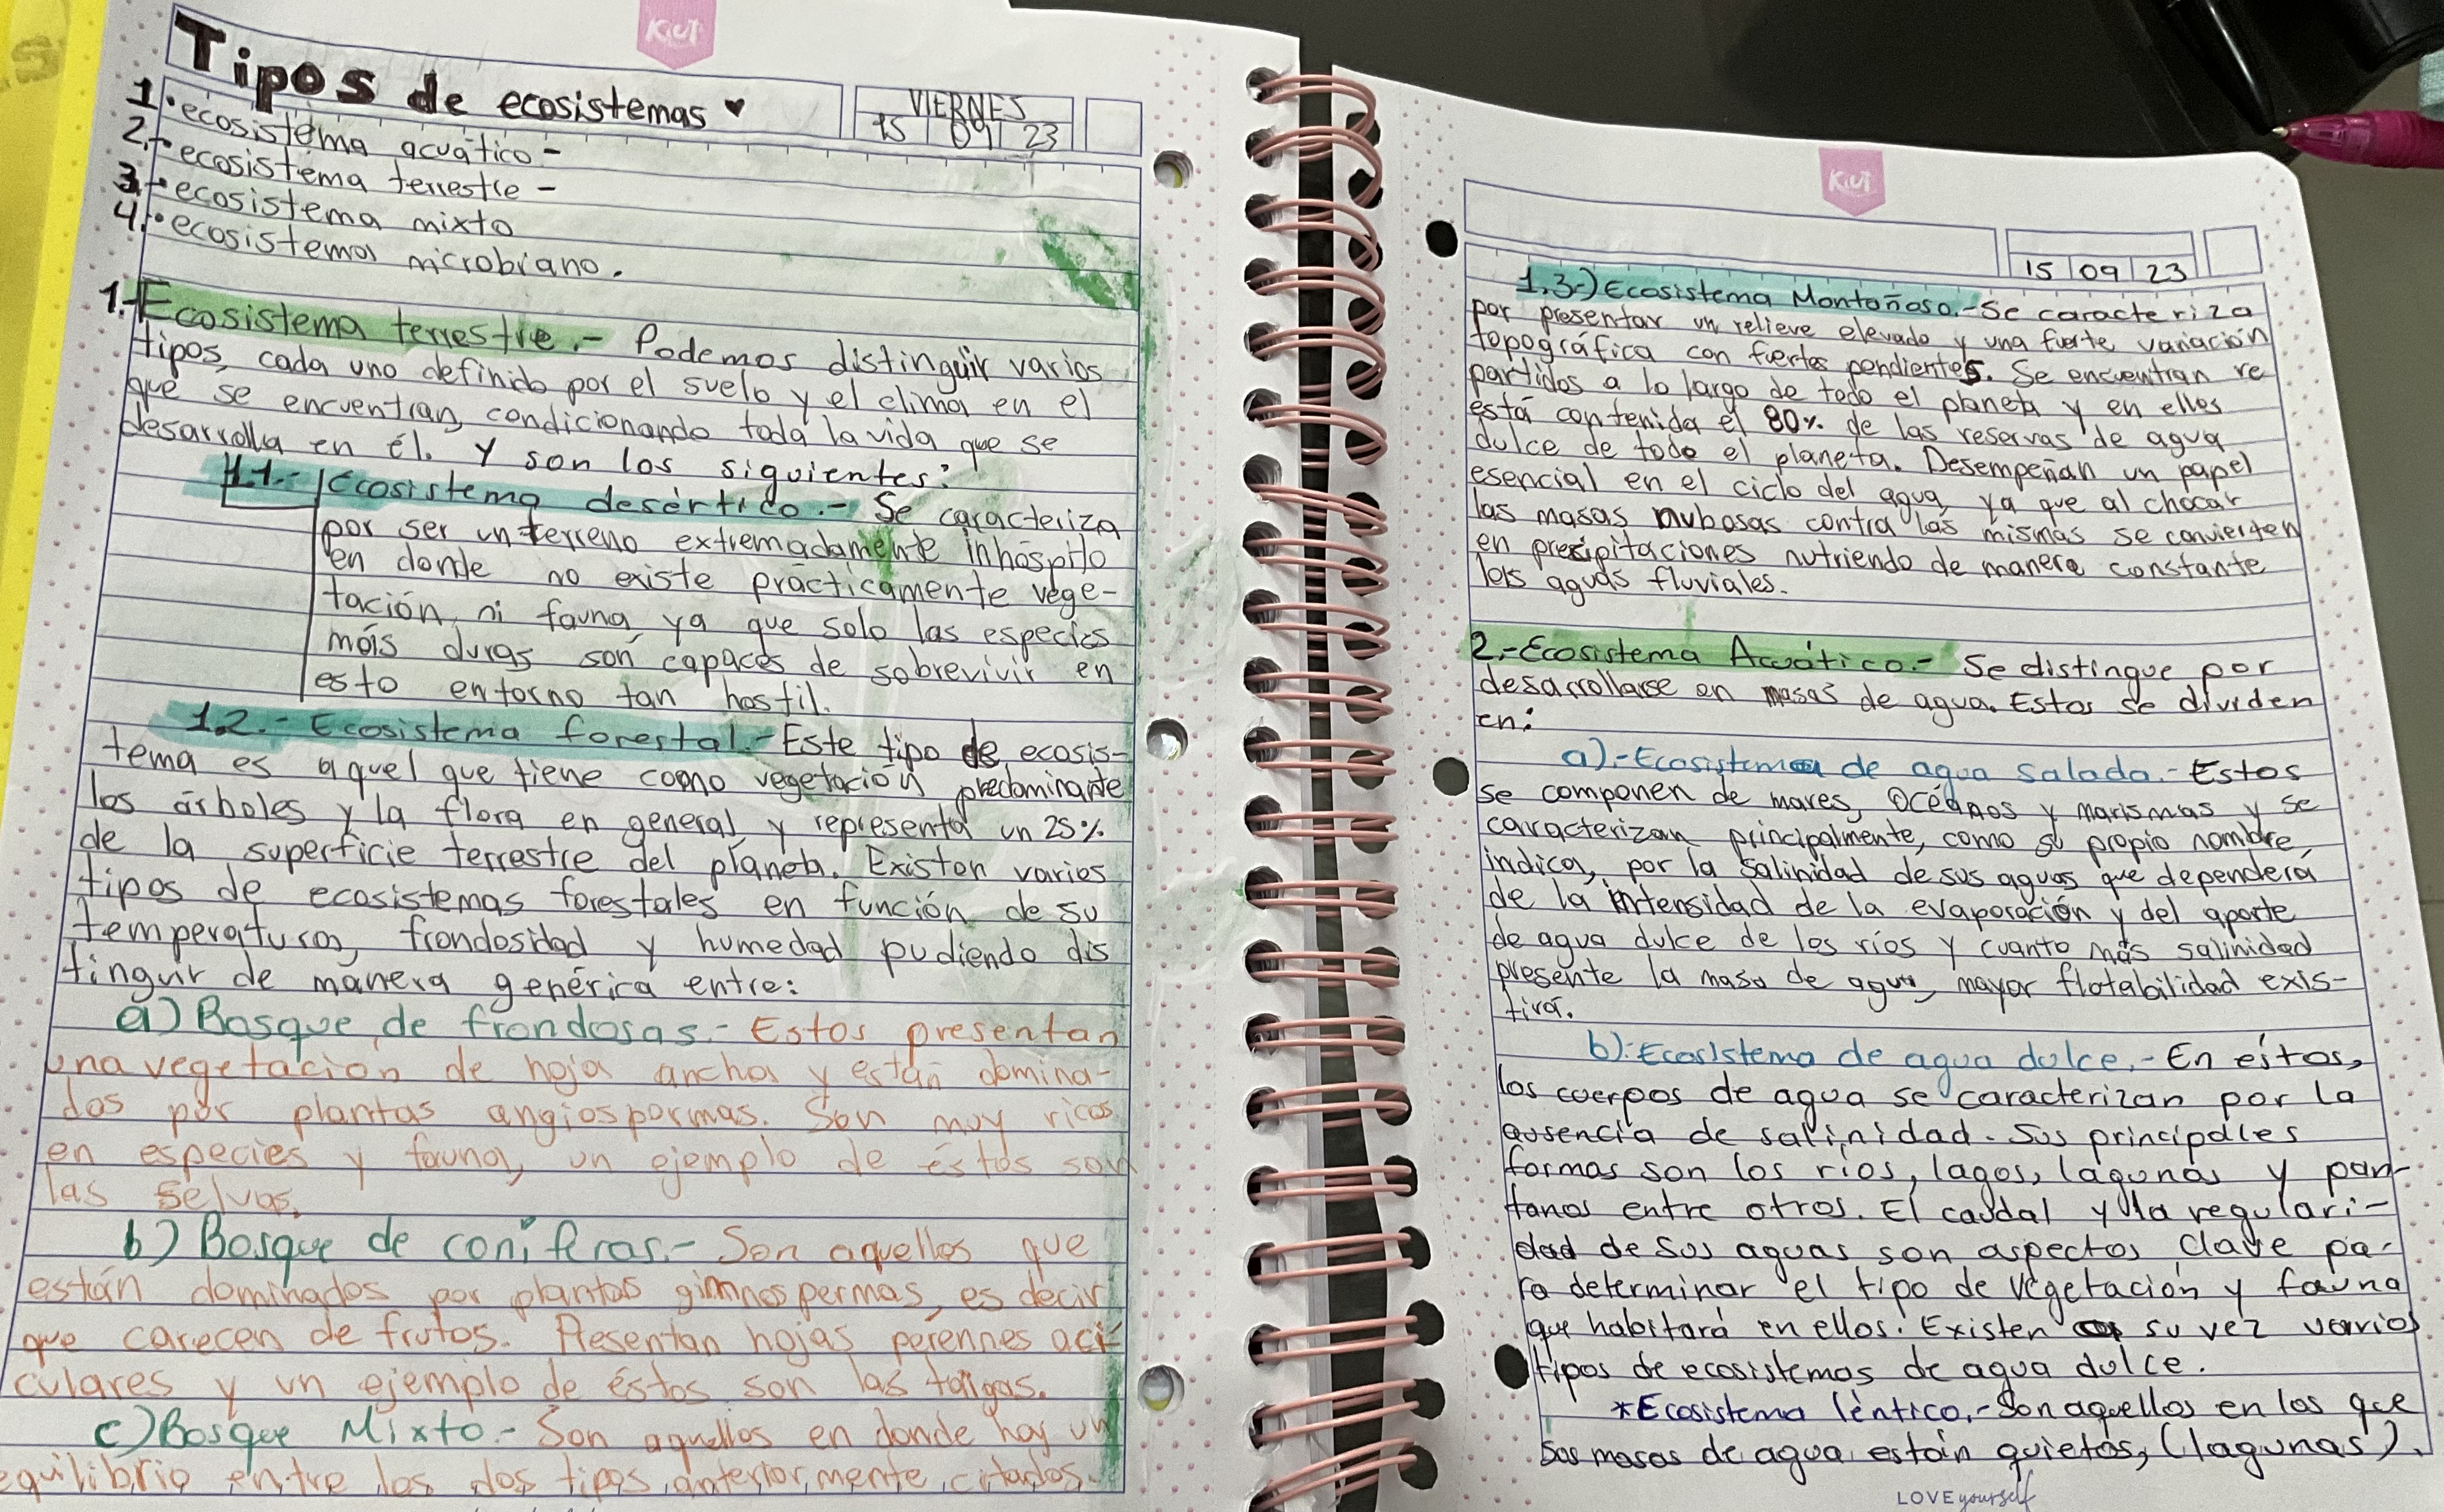 Kiut
Tipos de ecosistemas
VIERNES
15 09 23
1.• ecosistema acuático -
2.• ecosistema terrestre -
3.• ecosistema mixto
4.• ecosistemas microbiano.
1.- Ecosistema terrestre.- Podemos distinguir varios
tipos, cada uno definido por el suelo y el clima en el
que se encuentran, condicionando toda la vida que se
desarrolla en él. Y son los siguientes:
1.1.- Ecosistema desértico.- Se caracteriza
por ser un terreno extremadamente inhóspito
en donde no existe prácticamente vege-
tación, ni fauna ya que solo las especies
más duras son capaces de sobrevivir en
esto entorno tan hostil.
1.2.- Ecosistema forestal.- Este tipo de ecosis-
tema es aquel que tiene como vegetación predominante
los árboles y la flora en general y representa un 25%
de la superficie terrestre del planeta. Existen varios
tipos de ecosistemas forestales en función de su
temperatura, frondosidad y humedad pudiendo dis
tinguir de manera genérica entre:
a) Bosque de frondosas.- Estos presentan
una vegetación de hoja ancha y están domina-
dos por plantas angiospermas. Son muy ricos
en especies y fauna, un ejemplo de éstos son
las selvas.
b) Bosque de coniferas.- Son aquellos que
están dominados por plantas gimnospermas, es decir
que carecen de frutos. Presentan hojas perennes aci
culares y un ejemplo de éstos son las taigas.
c) Bosque Mixto.- Son aquellos en donde hay un
equilibrio entre los dos tipos anteriormente citados.
Kiut
15 09 23
1.3.-) Ecosistema Montañoso.- Se caracteriza
por presentar un relieve elevado y una fuerte variación
topográfica con fuertes pendientes. Se encuentran re
partidos a lo largo de todo el planeta y en ellos
está contenida el 80% de las reservas de agua
dulce de todo el planeta. Desempeñan un papel
esencial en el ciclo del agua, ya que al chocar
las masas nubosas contra las mismas se convierten
en precipitaciones nutriendo de manera constante
las aguas fluviales.
2.- Ecosistema Acuático.- Se distingue por
desarrollarse en masas de agua. Estos se dividen
en:
a).- Ecosistema de agua salada.- Estos
se componen de mares, Océanos y marismas y se
caracterizan principalmente, como su propio nombre,
indica, por la salinidad de sus aguas que dependerá
de la intensidad de la evaporación y del aporte
de agua dulce de los ríos y cuanto más salinidad
presente la masa de agua, mayor flotabilidad exis-
tirá.
b).- Ecosistema de agua dulce.- En estos,
los cuerpos de agua se caracterizan por la
ausencia de salinidad. Sus principales
formas son los ríos, lagos, lagunas y pan-
tanos entre otros. El caudal y la regulari-
dad de sus aguas son aspectos clave pa-
ra determinar el tipo de vegetación y fauna
que habitará en ellos. Existen su vez varios
tipos de ecosistemas de agua dulce.
*Ecosistema léntico.- Son aquellos en los que
sus masas de agua están quietas, (lagunas).
LOVE yourself